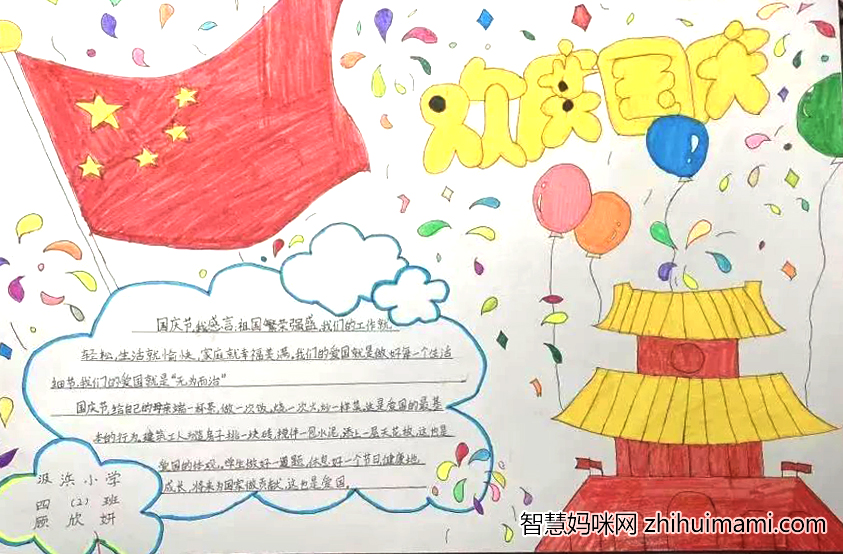 欢度国庆
国庆节,我感言,祖国繁荣强盛,我们的工作就
轻松,生活就愉快,家庭就幸福美满,我们的爱国就是做好每一个生活
细节,我们的爱国就是“无为而治”
国庆节,给自己的母亲端一杯茶,做一次饭,烧一次火,炒一样菜,这是爱国的最基
本的行为,建筑工人为造房子挑一块砖,搅伴一包水泥,添上一层天花板,这也是
爱国的体现,学生做好一道题,休息好一个节日,健康地
成长,将来为国家做贡献,这也是爱国。
汲浜小学
四(2)班
顾欣妍
智慧妈咪网 zhihuimami.com